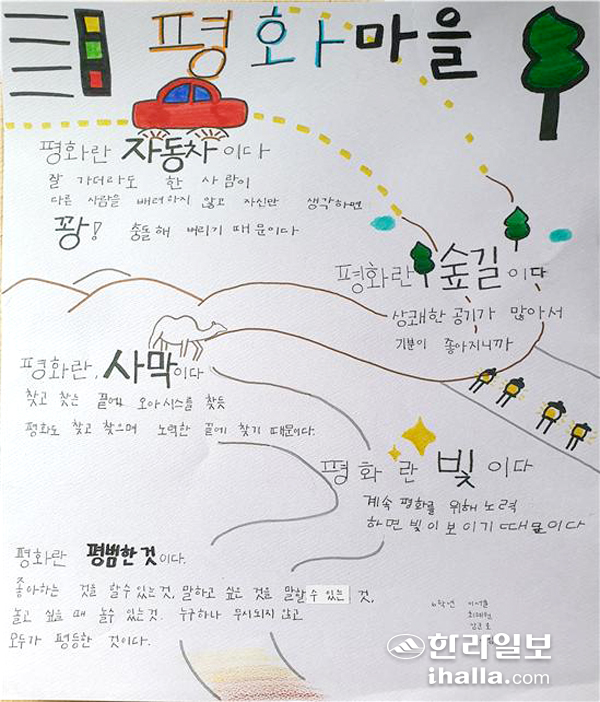 평화마을
평화란 자동차이다
잘 가더라도 한 사람이
다른 사람을 배려하지 않고 자신만 생각하면
꽝! 충돌해 버리기 때문이다
평화란 숲길이다
상쾌한 공기가 많아서
기분이 좋아지니까
평화란, 사막이다
찾고 찾은 끝에 오아시스를 찾듯
평화도 찾고 찾으며 노력한 끝에 찾기 때문이다.
평화란 빛이다
계속 평화를 위해 노력
하면 빛이 보이기 때문이다
평화란 평범한 것이다.
좋아하는 것을 할 수 있는 것, 말하고 싶은 것을 말할 수 있는 것,
놀고 싶을 때 놀 수 있는 것. 누구하나 무시되지 않고
모두가 평등한 것이다.
6학년
한라일보
ihalla.com